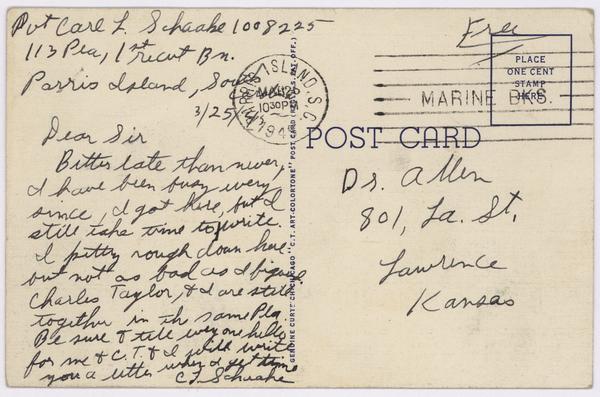 Pvt Carl L Schaake 1008225
113 Pla, 1st recrut Bn.
Parris Island, South
3/25/43
Dear Sir
Bitter late than never,
I have been busy every
since, I got here, but I
still take time to write.
I pitty rough down here
but not as bad as I figure
Charles Taylor, & I are still
together in the same Pla
Be sure & tell everyone hello
for me & C.T. & I will write
you a letter when I get time
C L Schaake
PARRIS ISLAND, S.C.
MAR 25
1030 PM
194
MARINE BKS.
Free
PLACE
ONE CENT
STAMP
HERE
POST CARD
Dr. Allen
801, La. St.
Lawrence
Kansas
GENUINE CURTEICH-CHICAGO "C.T. ART-COLORTONE" POST CARD (REG. U.S. PAT. OFF.)